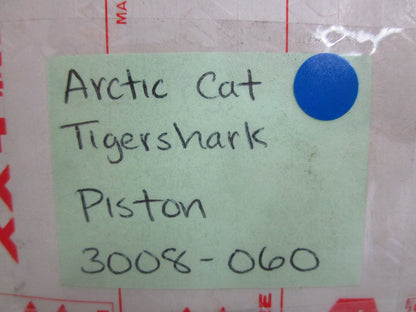 Arctic Cat
Tigershark
Piston
3008-060